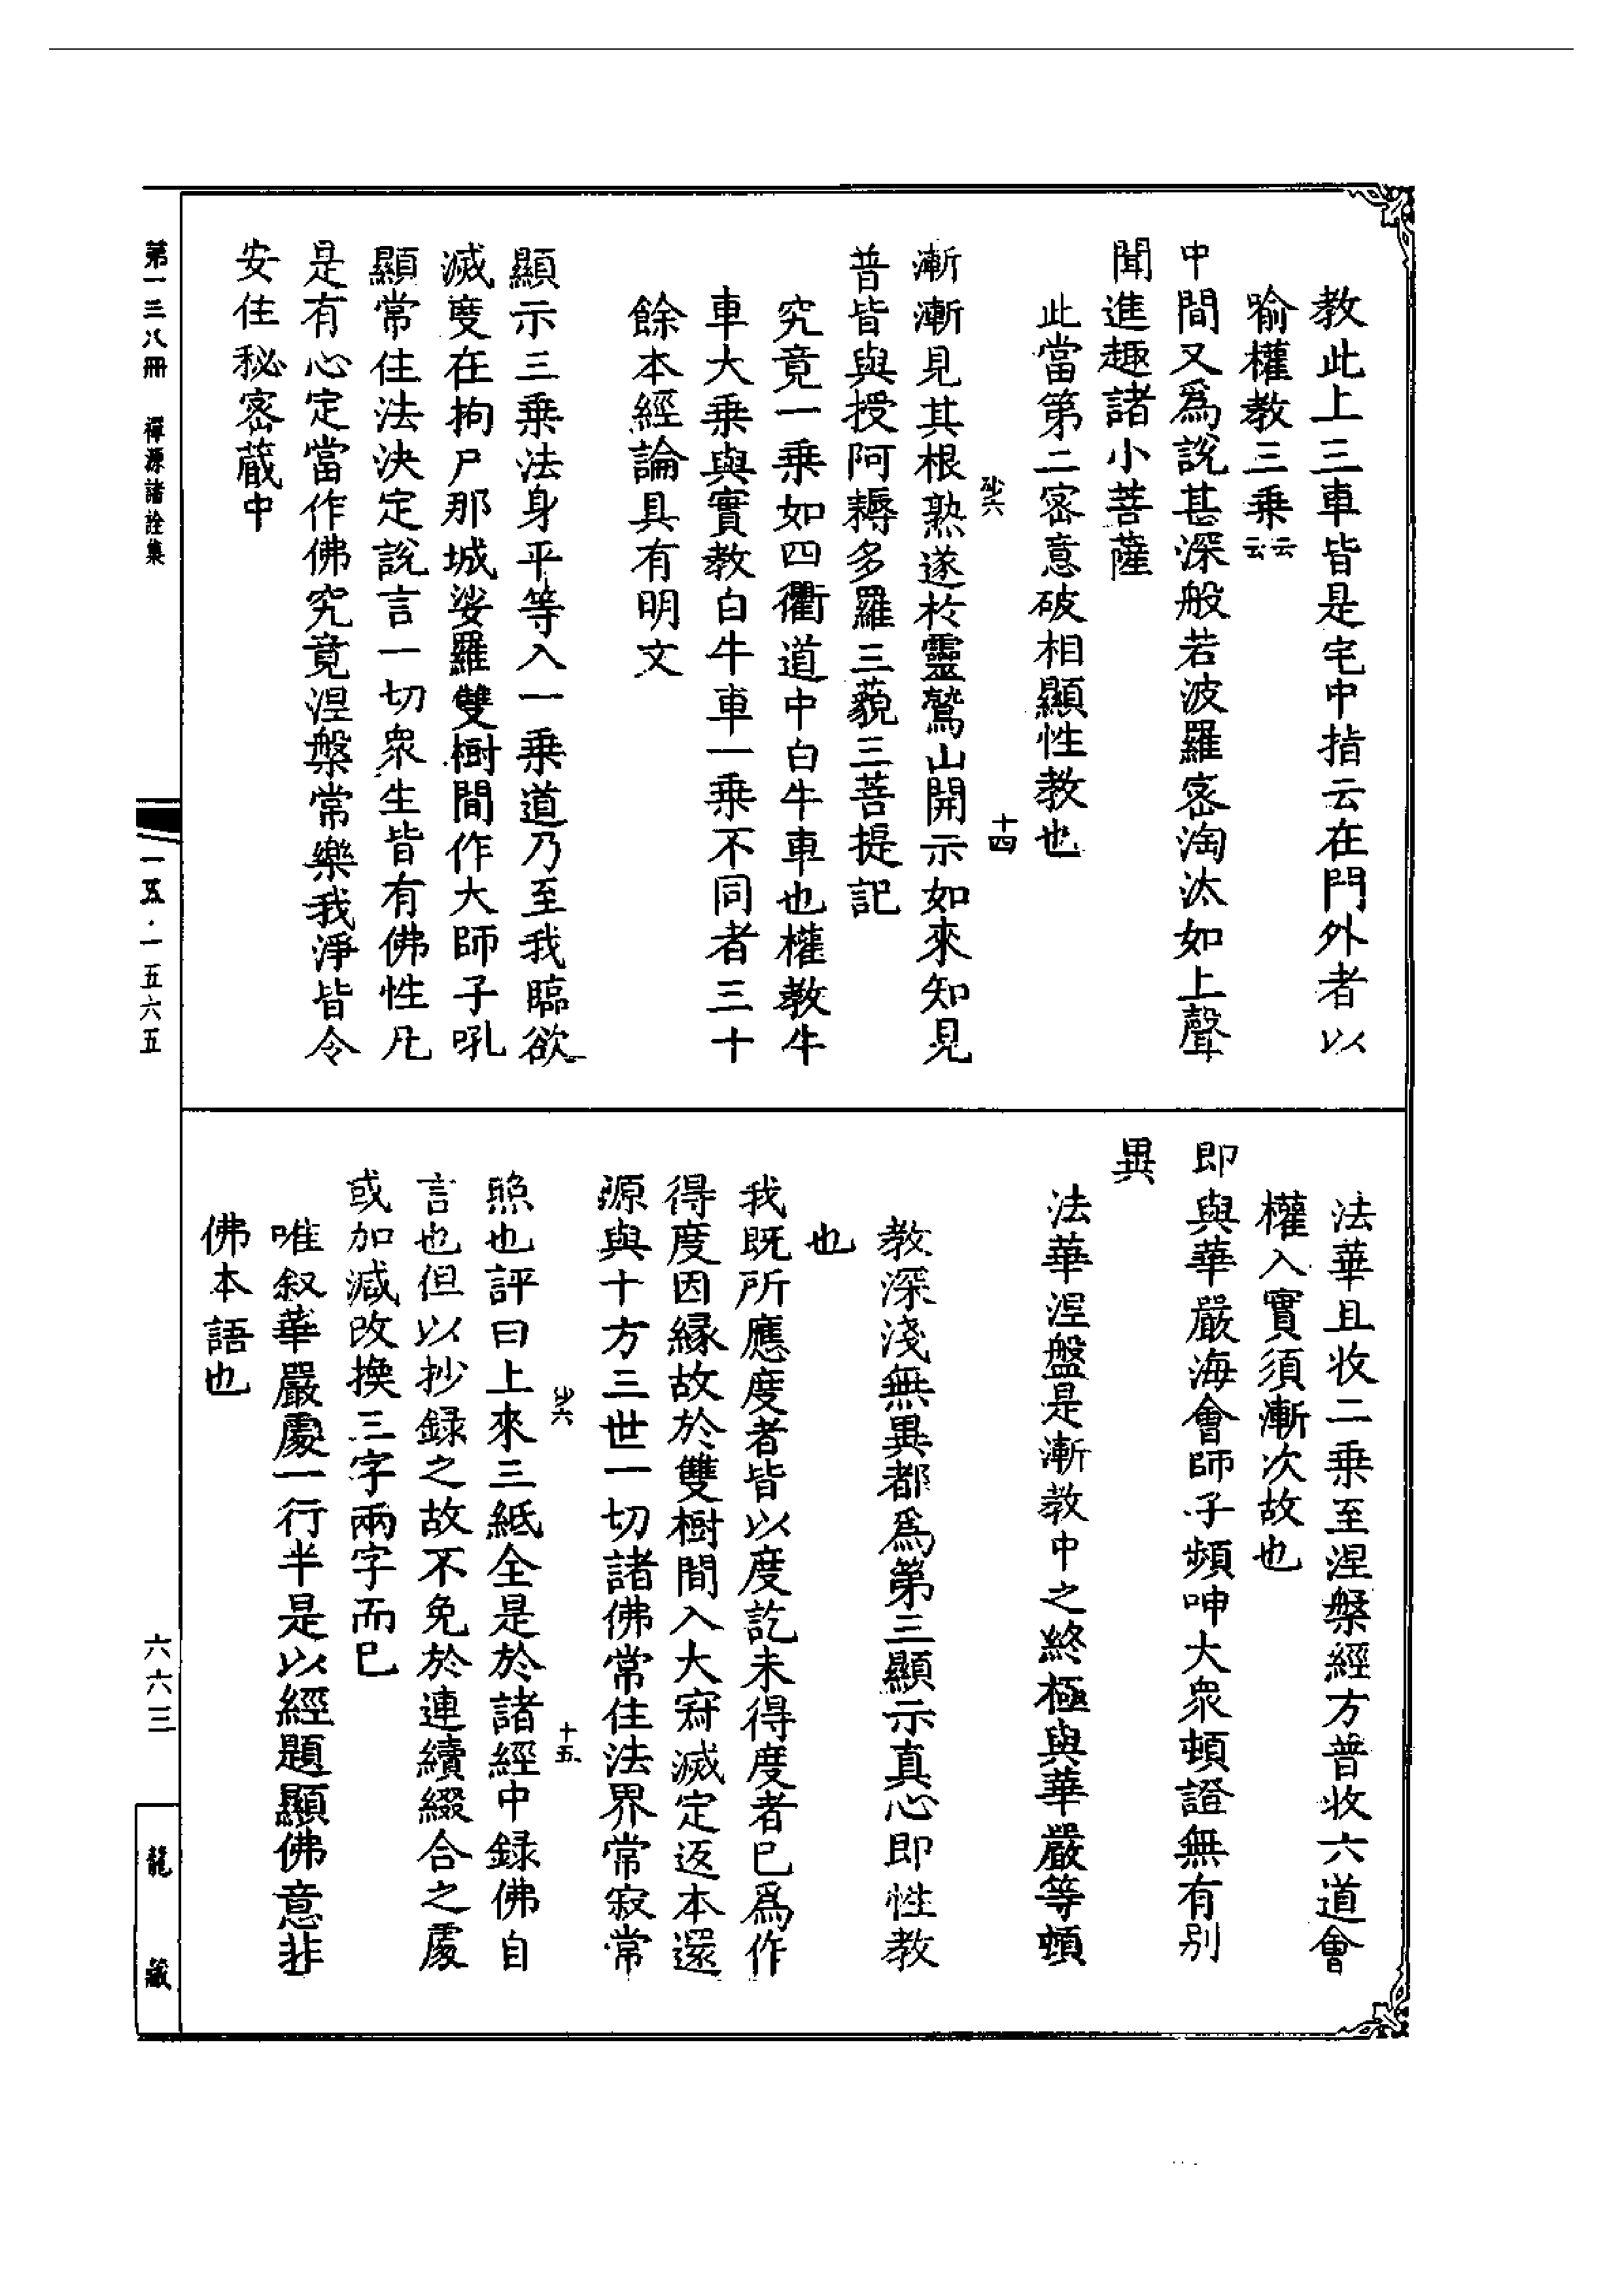 教此上三車皆是宅中指云在門外者以
喻權教三乘云云
中間又爲說甚深般若波羅宻淘汰如上聲
聞進趣諸小菩薩
此當第二宻意破相顯性教也
沙六
十四
漸漸見其根熟遂於靈鷲山開示如來知見
普皆與授阿耨多羅三藐三菩提記
究竟一乘如四衢道中白牛車也權教牛
車大乘與實教白牛車一乘不同者三十
餘本經論具有明文
顯示三乘法身平等入一乘道乃至我臨欲
滅度在拘尸那城娑羅雙樹間作大師子吼
顯常住法決定說言一切衆生皆有佛性凡
是有心定當作佛究竟涅槃常樂我淨皆令
安住秘宻蔵中
法華且收二乘至涅槃經方普收六道會
權入實須漸次故也
即與華嚴海會師子頻呻大衆頓證無有別
異
法華涅盤是漸教中之終極與華嚴等頓
教深淺無異都爲第三顯示真心即性教
也
我既所應度者皆以度訖未得度者已爲作
得度因緣故於雙樹間入大寂滅定返本還
源與十方三世一切諸佛常住法界常寂常
沙六
十五
照也評曰上來三紙全是於諸經中録佛自
言也但以抄録之故不免於連續綴合之處
或加減改換三字兩字而已
唯叙華嚴處一行半是以經題顯佛意非
佛本語也
第一三八冊 禪源諸詮集
一五·一五六五
六六三
龍藏